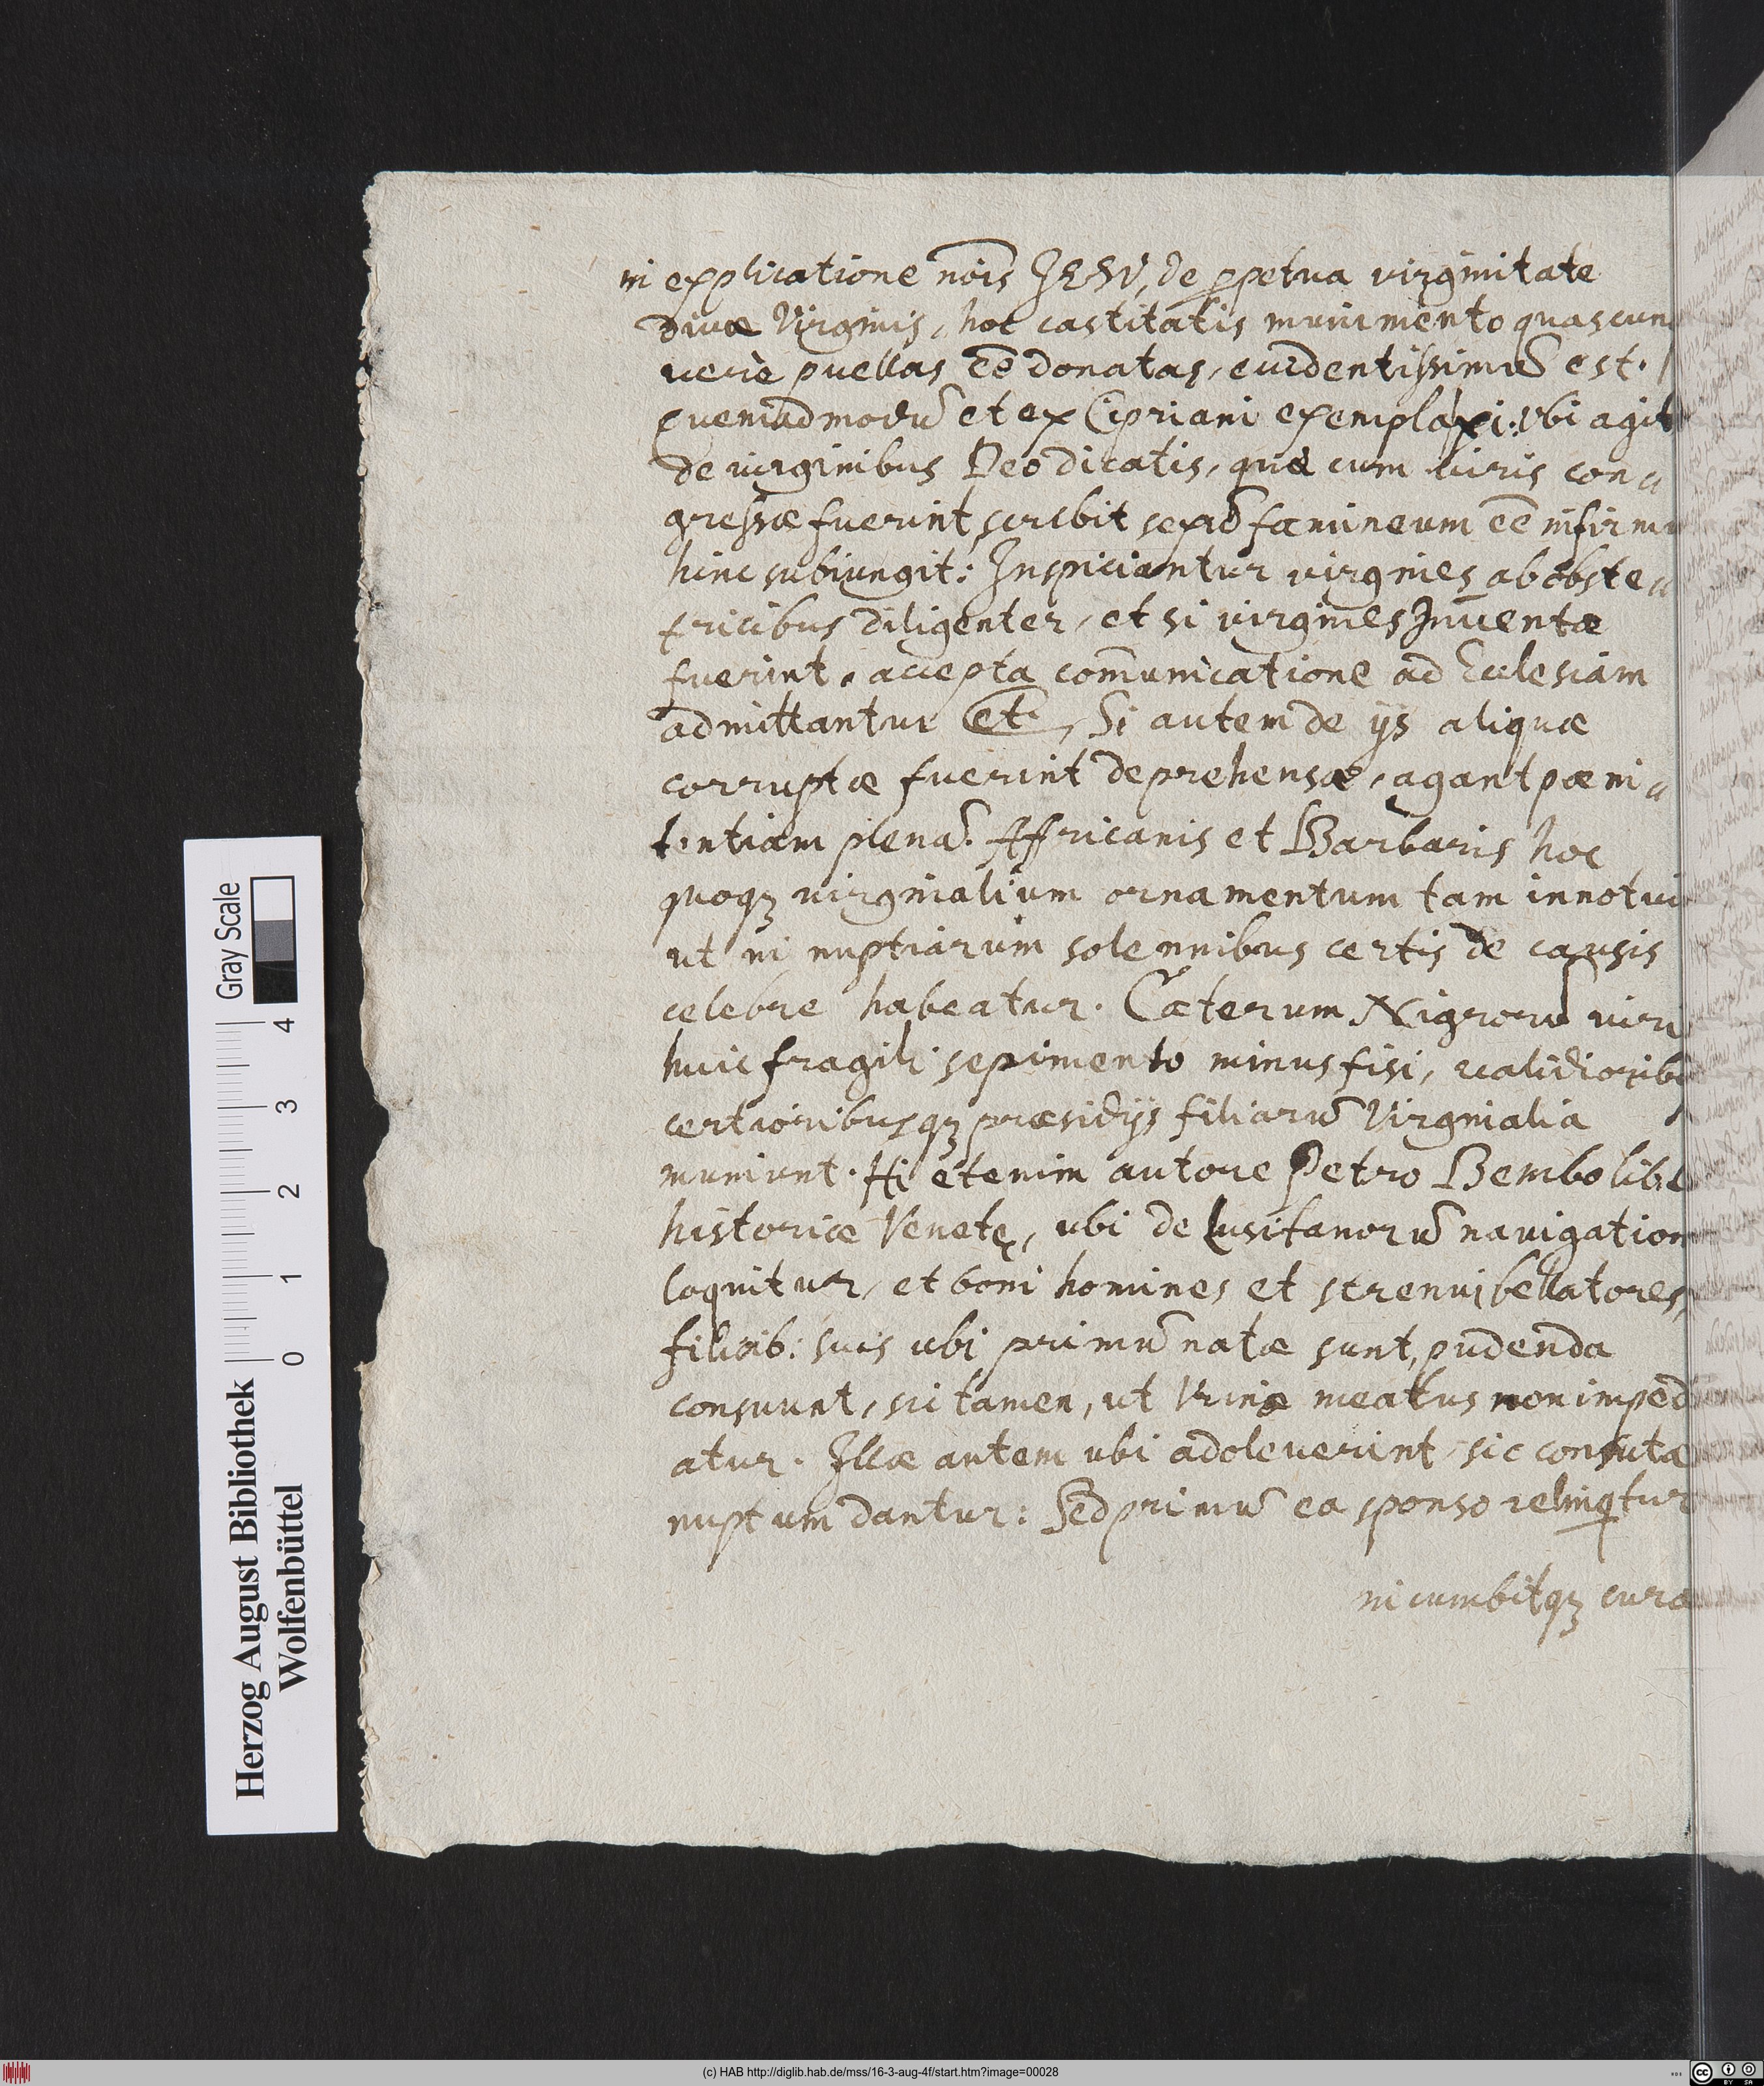 in explicatione nōis JESV, de ꝑpetua virginitate
divæ Virginis, hoc castitatis munimento quascun
verè puellas eē donatas, euidentissimū est.
quemadmodū et ex Cipriani exempla xi: vbi agit
de virginibus Deo dicatis, quæ cum viris con
gressæ fuerint, scribit sexū fœmineum eē infirm
hinc subiungit: Inspiciantur virgines ab obste
tricibus diligenter, et si virgines Inventæ
fuerint, accepta com̄unicatione ad Ecclesiam
admittantur etc, Si autem de ijs aliquæ
corruptæ fuerint deprehensæ, agant pœni
tentiam plenā. Affricanis et Barbaris hoc
quoqꝫ virginalium ornamentum tam innotui
ut in nuptiarum solennibus certis de causis
celebre habeatur. Cæterum Nigrorū viri
huic fragili sepimento minus fisi, validiorib
certioribusqꝫ præsidijs filiarū Virginalia
muniunt. Hi etenim autore Petro Bembo lib.
historiæ Venetę, ubi de Lusitanorū nauigation
loquitur, et boni homines et strenui bellatores,
filiab: suis ubi primū natæ sunt, pudenda
consuunt, sic tamen, ut Vrinæ meatus non imped
atur. Illæ autem ubi adoleuerint sic consutæ
nuptum dantur: Sed primū ea sponso relinqtur
incumbitqꝫ cura
Gray Scale
4
3
2
1
0
Herzog August Bibliothek
Wolfenbüttel
(c) HAB http://diglib.hab.de/mss/16-3-aug-4f/start.htm?image=00028
cc
BY SA